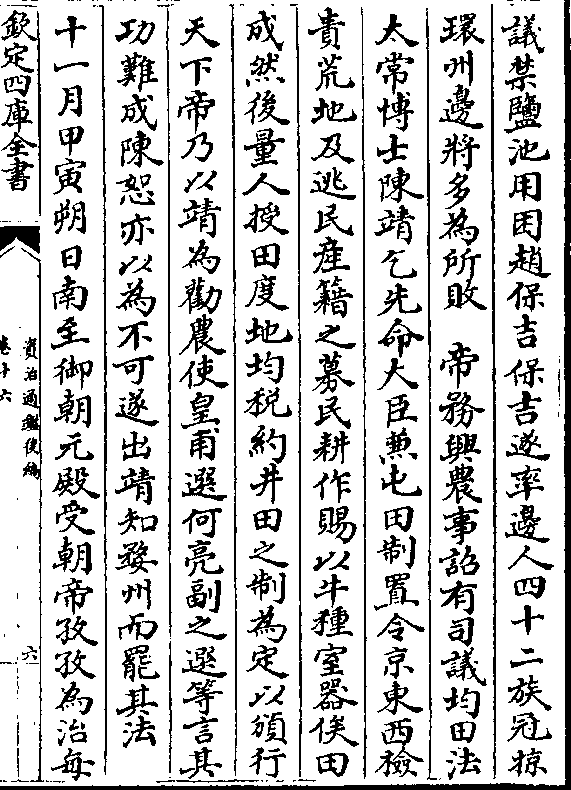 議禁鹽池用困趙保吉保吉遂率邊人四十二族冦掠
環州邊將多為所敗　帝務興農事詔有司議均田法
太常博士陳靖乞先命大臣兼屯田制置令京東西檢
責荒地及逃民産籍之募民耕作賜以牛種室器俟田
成然後量人授田度地均税約井田之制為定以頒行
天下帝乃以靖為勸農使皇甫選何亮副之選等言其
功難成陳恕亦以為不可遂出靖知婺州而罷其法
十一月甲寅朔日南至御朝元殿受朝帝孜孜為治每
欽定四庫全書
資治通鑑後編
卷十六
六